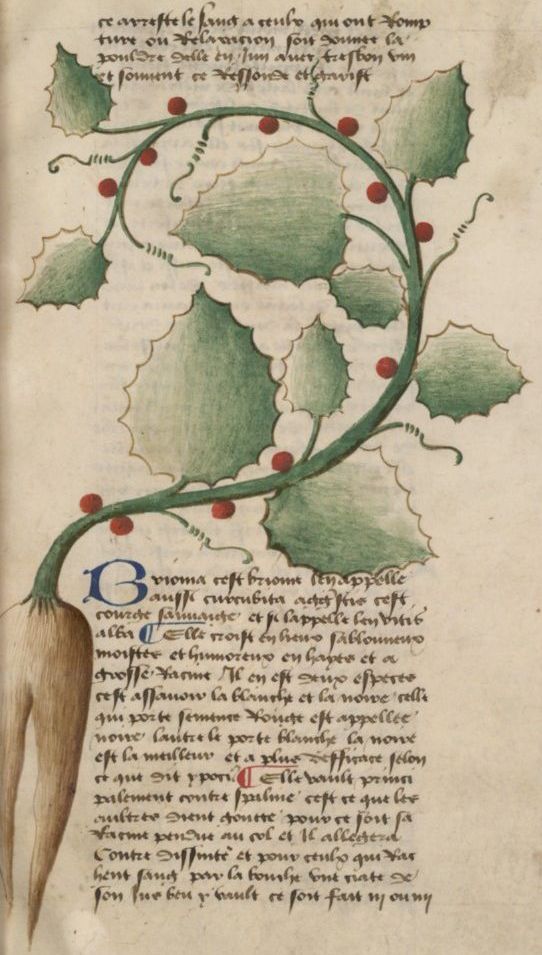 ce arreste le sang a ceulx qui ont Romp
ture ou Relaxacion soit donnee la
pouldre delle en Jun auec tresbon vin
et souuent ce Ressoude et garist
Brioma cest brione len appelle
aussi curcubita agrestis cest
courge sauuaige et si lappelle len vitis
alba Elle croist en lieux sablonneux
moistes et humoreux en hayes et a
grosse Racine Il en est deux especes
cest assauoir la blanche et la noire celle
qui porte semence Rouge est appellee
noire lautre le porte blanche la noire
est la meilleur et a plus defficace selon
ce que dit ypocras Elle vault princi
palement contre spasme cest ce que les
aultres dient goute pour ce soit sa
Racine pendue au col et Il allegera
Contre dissinte et pour ceulx qui Rac
hent sang par la bouche vne ciate de
son Jus beu y vault ce soit fait iii ou iiii